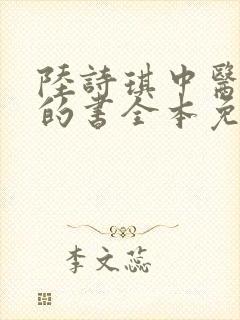 陸詩琪中醫
的書全本免
李文蕊